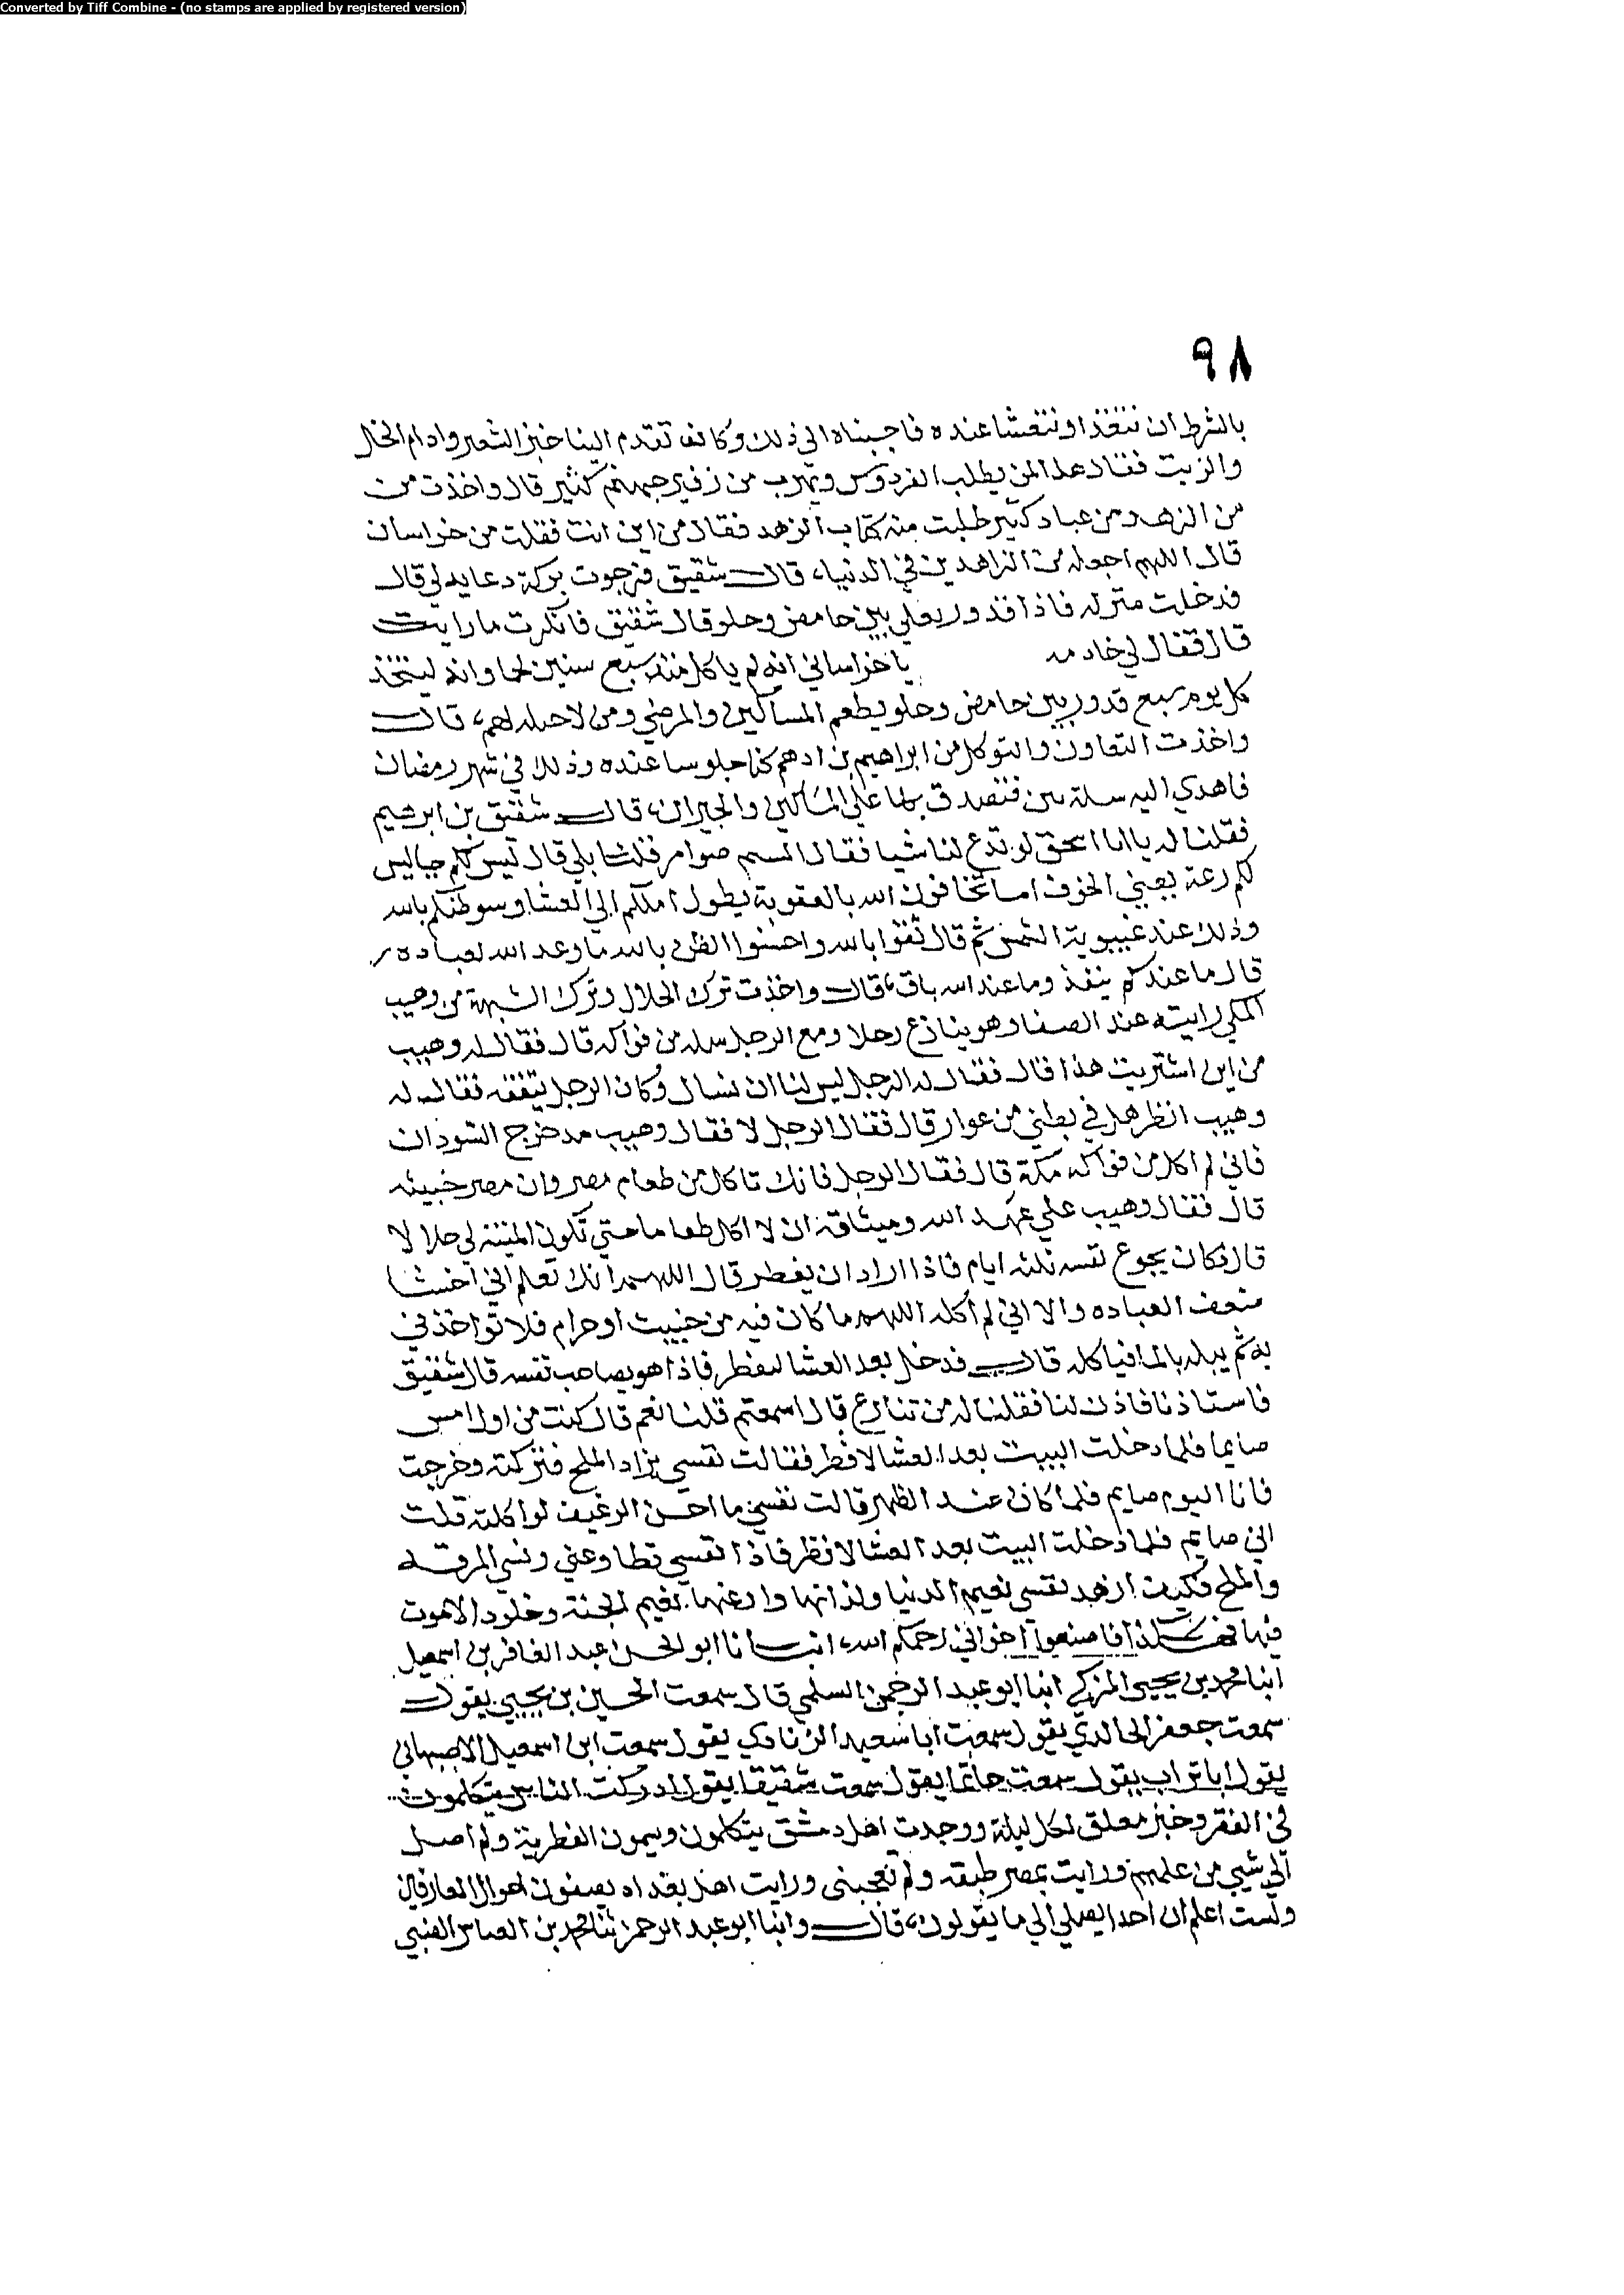 Converted by Tiff Combine - (no stamps are applied by registered version)
٩٨
بالشرط ان نتغذا ونتعشا عنده فاجبناه الى ذلك وكان تقدم الينا خبز الشعير وادام الخل
والزيت فقال هذا لمن يطلب الفردوس ويهرب من زفير جهنم كثير قال واخذت من
من الزهد ومن عباد كثير طلبت منه كتاب الزهد فقال من اين انت فقلت من خراسان
قال اللهم اجعله من الزاهدين في الدنيا، قال شقيق فرجوت بركة دعايه لي قال
فدخلت منزله فاذا قدور يغلي بين حامض وحلو قال شقيق فانكرت ما رايت
قال فقال لي خادمه يا خراساني انه لم ياكل منذ سبع سنين لحما وانه ليتخذ
كل يوم سبع قدور بين حامض وحلو يطعم المساكين والمرضي ومن لا حيله لهم، قال
واخذت التعاون والتوكل من ابراهيم بن ادهم كنا جلوسا عنده وذلك في شهر رمضان
فاهدي اليه سلة تين فتصدق بها علي المساكين والجيران، قال شقيق بن ابرهيم
فقلنا له يا ابا اسحق لو تدع لنا شيا فقال الستم صوام قلنا بلي قال ليس لكم حيا ليس
لكم رعة يعني الخوف اما تخافون الله بالعقوبة بطول املكم الي العشا وسو ظنكم بالله
وذلك عند غيبوبة الشمس ثم قال ثقوا بالله واحسنوا الظن بالله ما وعد الله لعباده
قال ما عندكم ينفذ وما عند الله باق، قال واخذت ترك الحلال وترك الشبهة من وهيب
المكي رايته عند الصفا وهو ينازع رجلا ومع الرجل سله من فواكه قال فقال له وهيب
من اين اشتريت هذا قال فقال له الرجل ليس لنا ان نسال وكان الرجل يتفقه فقال له
وهيب انظر هل في بطني من عوار قال فقال الرجل لا فقال وهيب مذ خرج السودان
فاني لم اكل من فواكه مكة قال فقال الرجل فانك تاكل من طعام مصر وان مصر خبيثه
قال فقال وهيب علي عهد الله وميثاقه ان لا اكل طعاما حتي تكون الميتة لي حلالا
قال فكان يجوع نفسه ثلثه ايام فاذا اراد ان يفطر قال اللهم انك تعلم اني اخشا
ضعف العباده والا اني لم اكله اللهم ما كان فيه من خبيث او حرام فلا تواخذني
به ثم يبله بالما فياكله قال فدخل بعد العشا ليفطر فاذا هو يصاحب نفسه قال شقيق
فاستاذنا فاذن لنا فقلنا له من تنازع قال اسمعتم قلنا نعم قال كنت من اول امس
صايما فلما دخلت البيت بعد العشا لافطر فقالت نفسي يزاد الملح فتركته وخرجت
فانا اليوم صايم فلما كان عند الظهر قالت نفسي ما احسن الرغيف لو اكلته قلت
اني صايم فلما دخلت البيت بعد العشا لافطر فاذا نفسي تطاوعني ونسي المرقه
والملح فكيف ازهد نفسي نعيم الدنيا ولذاتها وارغبها نعيم الجنة وخلود الاموت
فيها فهكذا فاصنعوا اخواني رحمكم الله، انبانا ابو الحسن عبد الغافر بن اسمعيل
ابنا محمد بن يحيي المزكي ابنا ابو عبد الرحمن السلمي قال سمعت الحسين بن يحيي يقول
سمعت جعفر الخالدي يقول سمعت ابا سعيد الزنادي يقول سمعت ابن اسمعيل الاصبهاني
يقول ابا تراب يقول سمعت حاتما يقول سمعت شقيقا يقول ادركت الناس يتكلمون
في الفقر وخبز معلق لكل ليلة ووجدت اهل دمشق يتكلمون ويسمون الفطرية ولم اصل
الي شيي من علمهم ورايت بمصر طبقه ولم تعجبني ورايت اهل بغداد يصفون احوال العارفين
ولست اعلم ان احدا يصلي الي ما يقولون، قال وابنا ابو عبد الرحمن ثنا محمد بن العباس الضبي